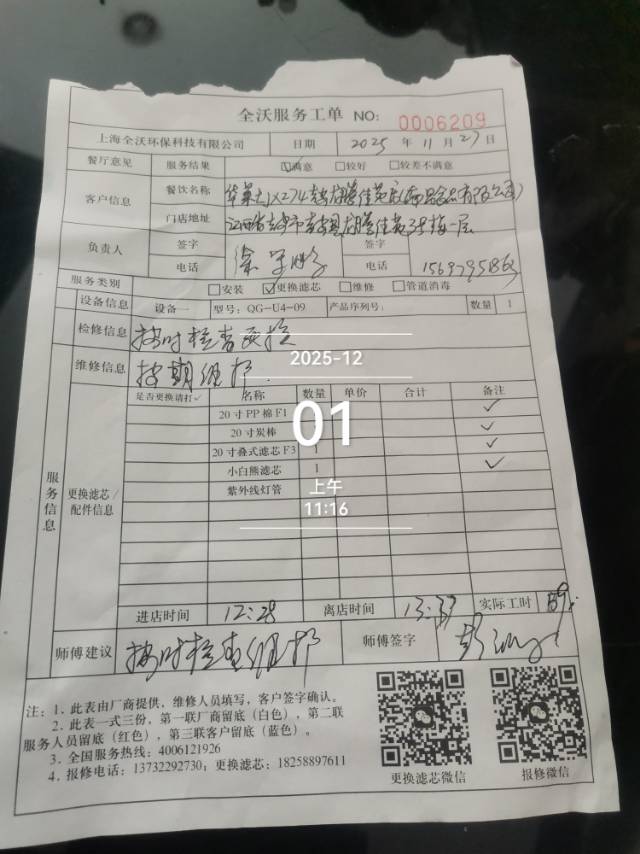 全沃服务工单 NO: 0006209
上海全沃环保科技有限公司 日期 2025年11月27日
餐厅意见 服务结果 ☑满意 □较好 □较差不满意
客户信息 餐饮名称
门店地址
负责人 签字 签字
电话 电话
服务类别 □安装 ☑更换滤芯 □维修 □管道消毒
设备信息 设备一 型号: QG-U4-09 产品序列号: 数量 1
检修信息 按时检查更换
维修信息 按期维护
2025-12
01
上午
11:16
服务信息
更换滤芯/配件信息
是否更换请打✓ 名称 数量 单价 合计 备注
20寸PP棉F1 ✓
20寸炭棒 ✓
20寸叠式滤芯F3 1 ✓
小白熊滤芯 1 ✓
紫外线灯管
进店时间 12:28 离店时间 13:37 实际工时
师傅建议 按时检查维护 师傅签字
注: 1、此表由厂商提供，维修人员填写，客户签字确认。
2、此表一式三份，第一联厂商留底（白色），第二联
服务人员留底（红色），第三联客户留底（蓝色）。
3、全国服务热线: 4006121926
4、报修电话: 13732292730; 更换滤芯: 18258897611
更换滤芯微信 报修微信